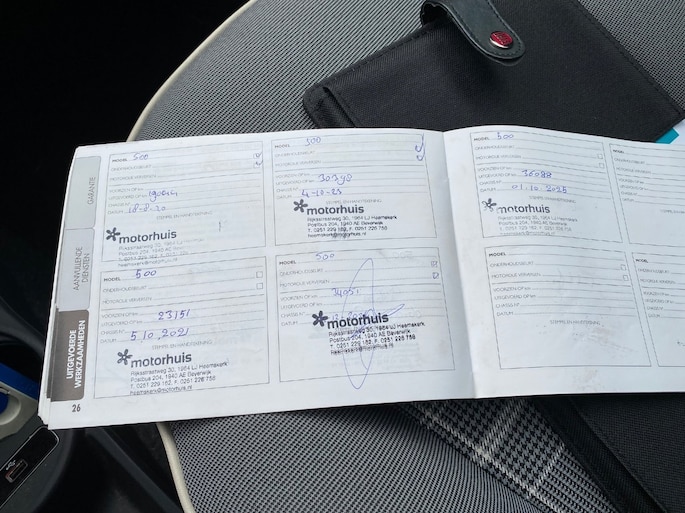 GARANTIE
AANVULLENDE
DIENSTEN
UITGEVOERDE
WERKZAAMHEDEN
26
MODEL 500
ONDERHOUDSBEURT
MOTOROLIE VERVERSEN
VOORZIEN OP KM
UITGEVOERD OP KM
CHASSIS Nº
DATUM 18-8-20
STEMPEL EN HANDTEKENING
motorhuis
Rijksstraatweg 30, 1964 LJ Heemskerk
Postbus 204, 1940 AE Beverwijk
MODEL 500
ONDERHOUDSBEURT
MOTOROLIE VERVERSEN
VOORZIEN OP KM 23151
UITGEVOERD OP KM
CHASSIS Nº
DATUM 5.10.2021
STEMPEL EN HANDTEKENING
motorhuis
Rijksstraatweg 30, 1964 LJ Heemskerk
Postbus 204, 1940 AE Beverwijk
T. 0251 229 162, F. 0251 226 758
heemskerk@motorhuis.nl
MODEL 500
ONDERHOUDSBEURT
MOTOROLIE VERVERSEN
VOORZIEN OP KM 30398
UITGEVOERD OP KM
CHASSIS Nº
DATUM 4-10-23
STEMPEL EN HANDTEKENING
motorhuis
Rijksstraatweg 30, 1964 LJ Heemskerk
Postbus 204, 1940 AE Beverwijk
T. 0251 229 162, F. 0251 226 758
heemskerk@motorhuis.nl
MODEL 500
ONDERHOUDSBEURT
MOTOROLIE VERVERSEN
VOORZIEN OP KM
UITGEVOERD OP KM
CHASSIS Nº
DATUM
motorhuis
Rijksstraatweg 30, 1964 LJ Heemskerk
Postbus 204, 1940 AE Beverwijk
T. 0251 229 162, F. 0251 226 758
heemskerk@motorhuis.nl
MODEL 500
ONDERHOUDSBEURT
MOTOROLIE VERVERSEN
VOORZIEN OP KM 36088
UITGEVOERD OP KM
CHASSIS Nº
DATUM 01.10.2025
STEMPEL EN HANDTEKENING
motorhuis
Rijksstraatweg 30, 1964 LJ Heemskerk
Postbus 204, 1940 AE Beverwijk
T. 0251 229 162, F. 0251 226 758
MODEL
ONDERHOUDSBEURT
MOTOROLIE VERVERSEN
VOORZIEN OP KM
UITGEVOERD OP KM
CHASSIS Nº
DATUM
STEMPEL EN HANDTEKENING